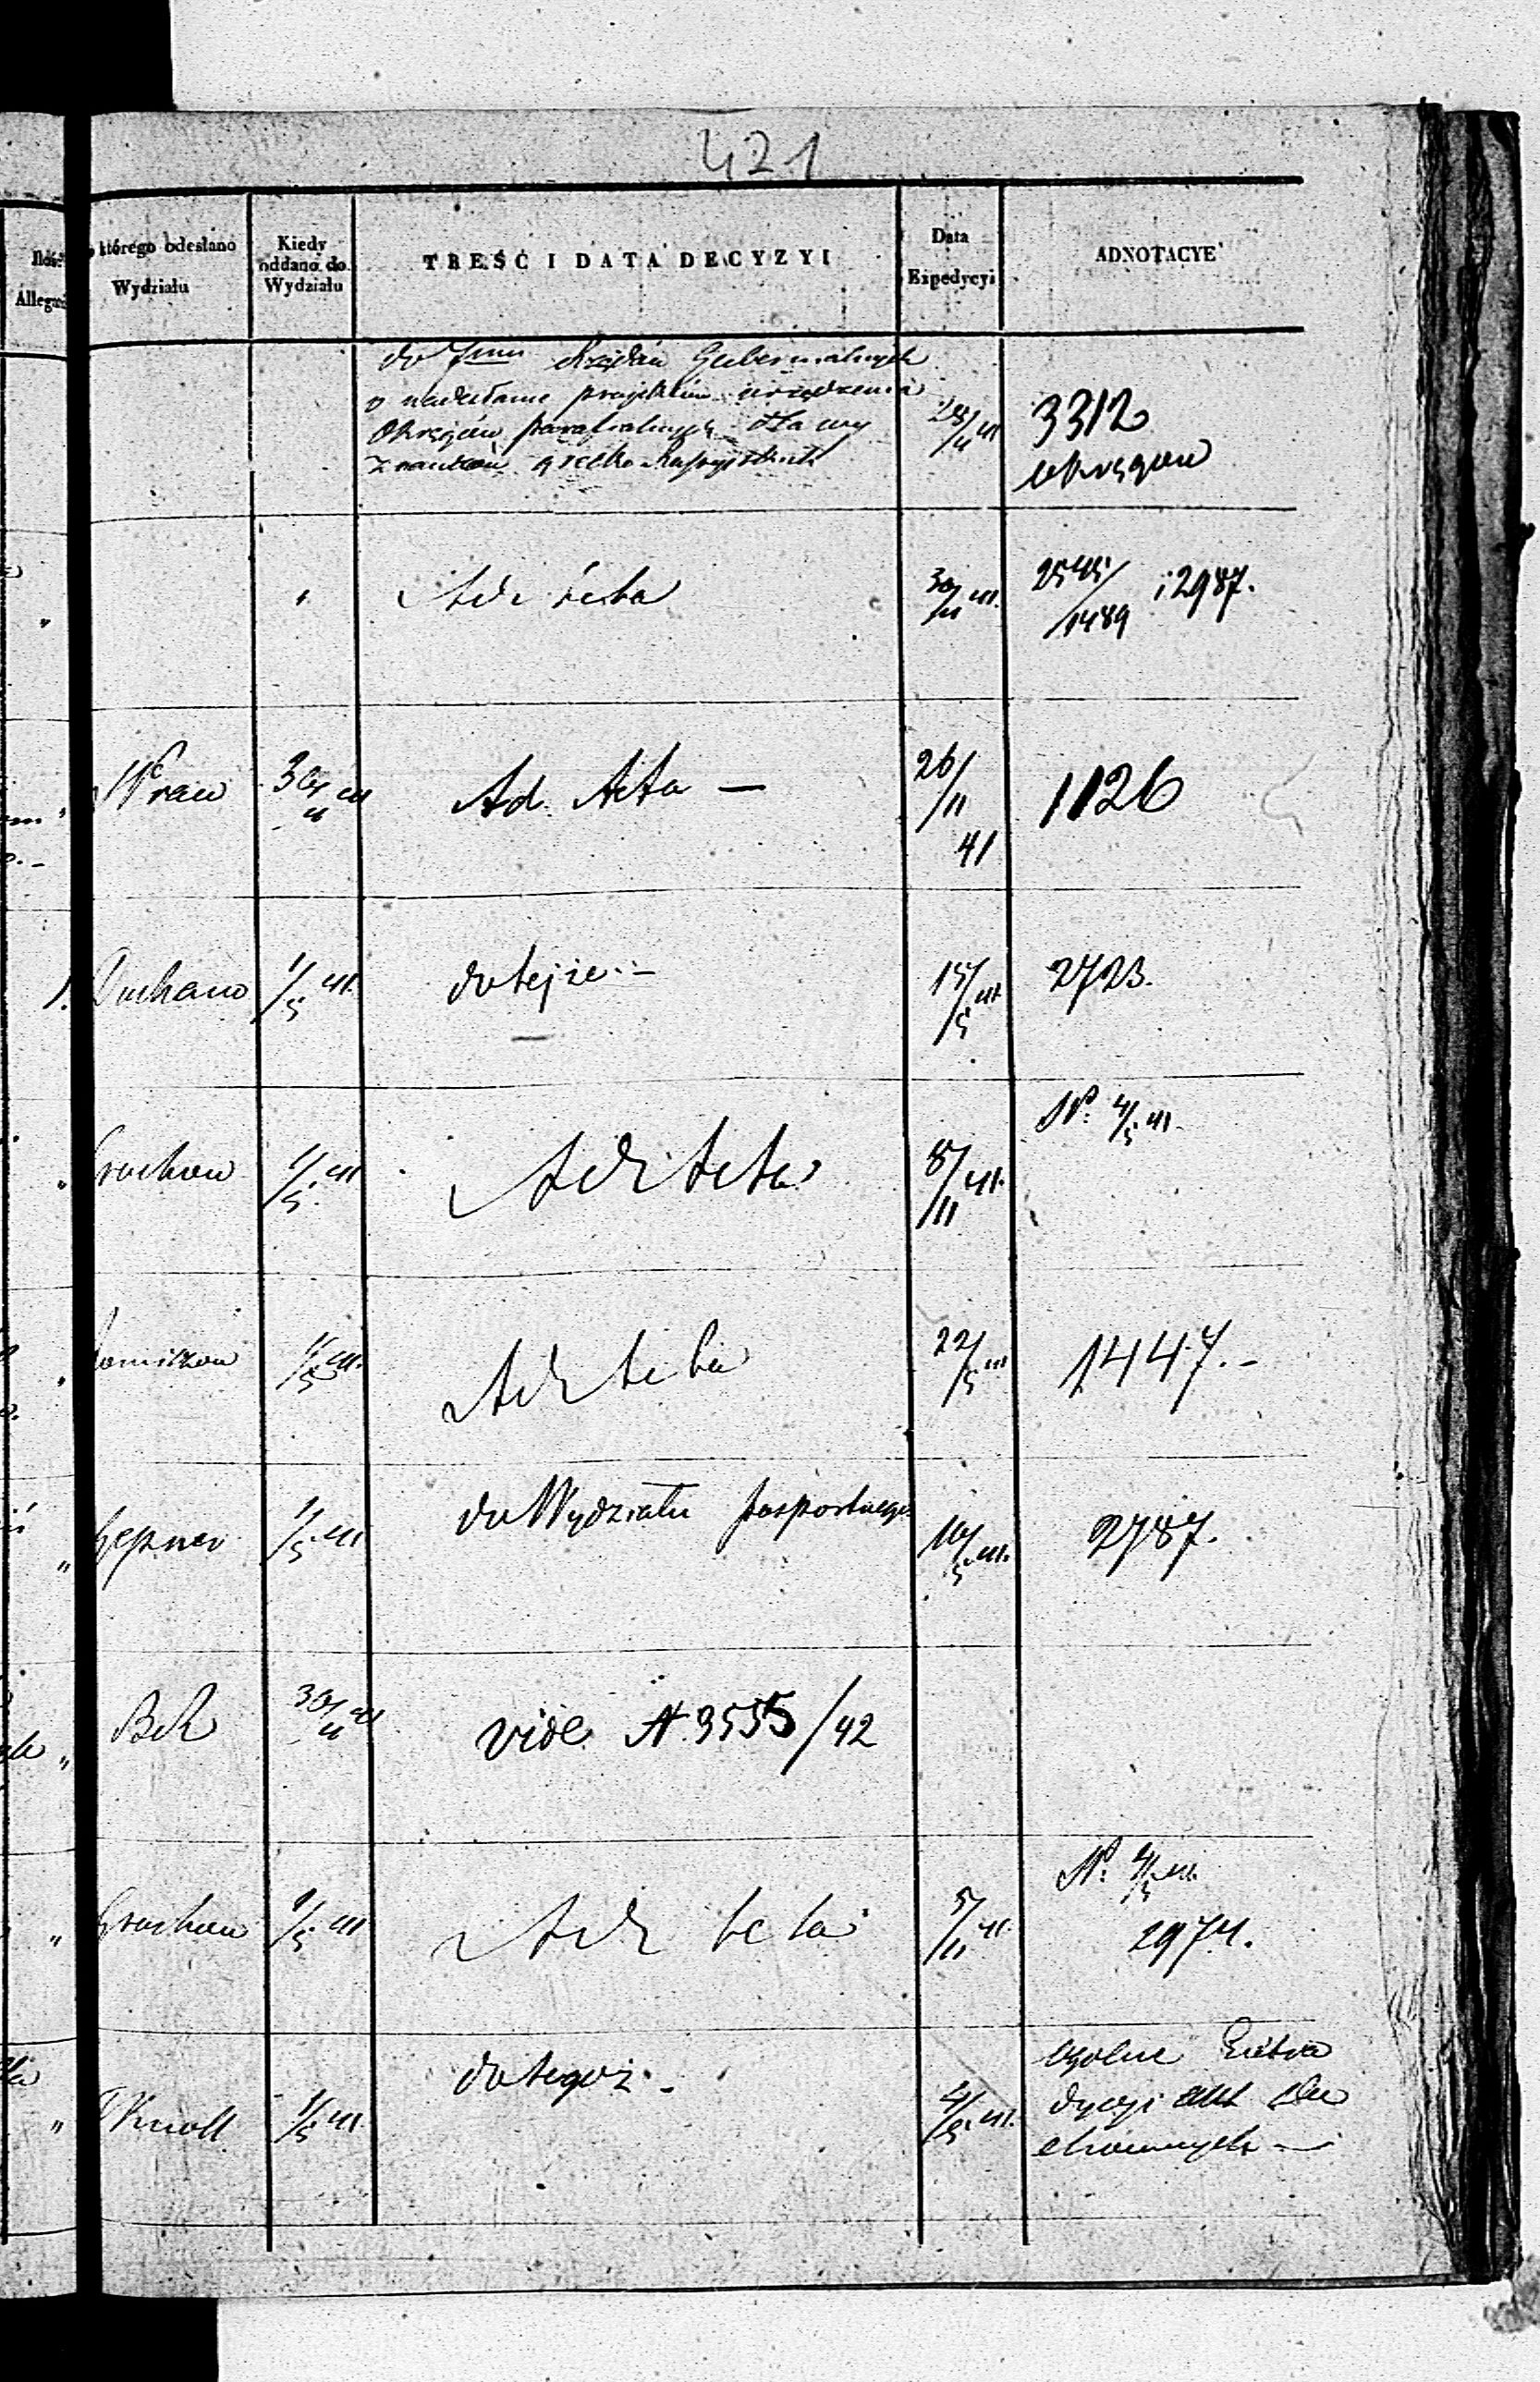 421
Ilość Allegat
którego odesłano Wydziału
Kiedy oddano do Wydziału
TREŚĆ I DATA DECYZYI
Data Expedycyi
ADNOTACYE
do Rządów Gubernialnych
o nadesłanie projektów urządzenia
Okręgów parafialnych dla wy
znawców grecko
28/4 41
3312
okręgow
Ad Acta
30/11 41.
2545/1489 i 2987.
Praw
30/4 41
Ad. Acta —
26/11 41
1126
Duchano
1/5 41.
do tejże. —
15/5 41.
2723.
Grochow
1/5 41
Ad Acta
8/11 41.
N° 4/5 41.
1/5 41.
Ad Acta
22/5 41
1447. -
Hepner
1/5 41
do Wydziału pasportowego
10/5 41.
2787.
Bek
30/4 41
vide N. 3555/42
Grochow
1/5 41
Ad Acta
5/11 41.
N° 4/5 41.
2974.
Knoll
1/5 41.
do tegoż. -
4/5 41.